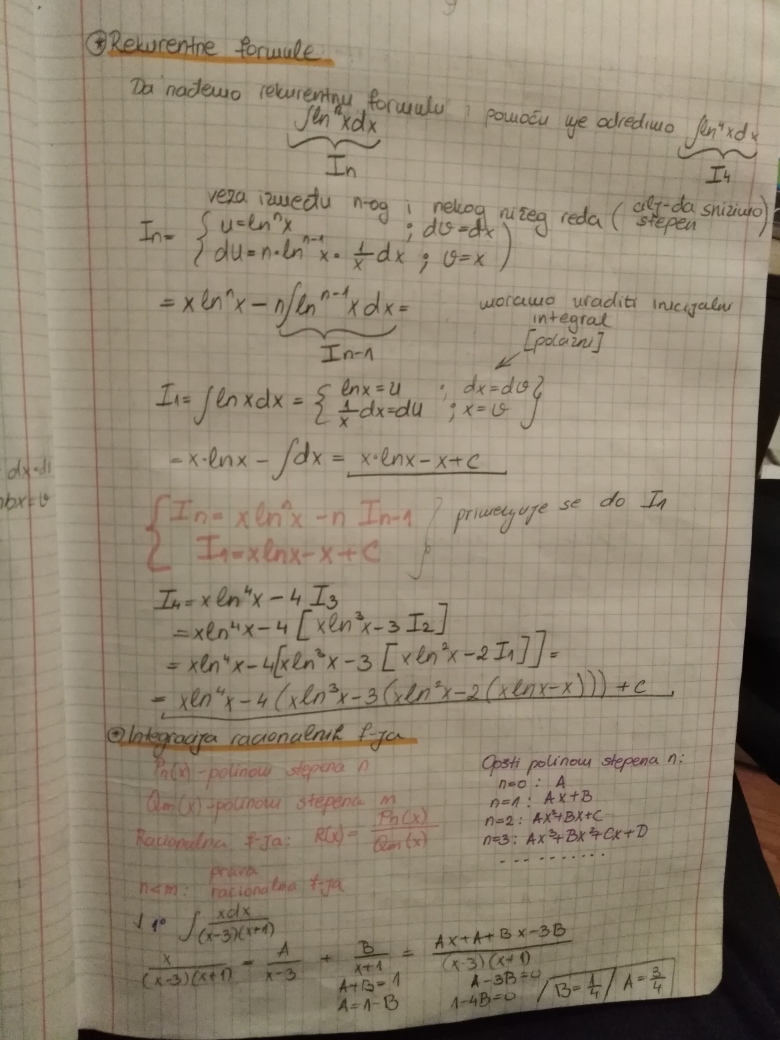 Rekurentne formule
Da nađemo rekurentnu formulu i pomoću nje odredimo ∫ln⁴xdx
∫lnⁿxdx
In
I₄
veza između n-og i nekog nižeg reda (cilj-da snizimo stepen)
In = { u=lnⁿx ; dv=dx
du=n·lnⁿ⁻¹x·1/x dx ; v=x }
= xlnⁿx - n∫lnⁿ⁻¹xdx =
In-1
moramo uraditi inicijalni
integral
[polazni]
I₁=∫lnxdx = { lnx=u ; dx=dv
1/x dx=du ; x=v }
= x·lnx - ∫dx = x·lnx-x+c
{ In= xlnⁿx - n In-1
I₁=xlnx-x+C }
primenjuje se do I₁
I₄= xln⁴x - 4 I₃
= xln⁴x - 4 [xln³x - 3 I₂]
= xln⁴x - 4[xln³x - 3 [xln²x - 2 I₁]] =
= xln⁴x - 4(xln³x - 3(xln²x - 2(xlnx-x))) + c
dx=d
bx=v
Integracija racionalnih f-ja
Pn(x)-polinom stepena n
Qm(x)-polinom stepena m
Racionalna f-ja: R(x)= Pn(x)/Qm(x)
n<m: prava racionalna f-ja
Opšti polinom stepena n:
n=0: A
n=1: Ax+B
n=2: Ax²+Bx+C
n=3: Ax³+Bx²+Cx+D
..........
√ 1° ∫ xdx/((x-3)(x+1))
x/((x-3)(x+1)) = A/(x-3) + B/(x+1) = (Ax+A+Bx-3B)/((x-3)(x+1))
A+B=1 A-3B=0
A=1-B 1-4B=0 / B=1/4 / A=3/4